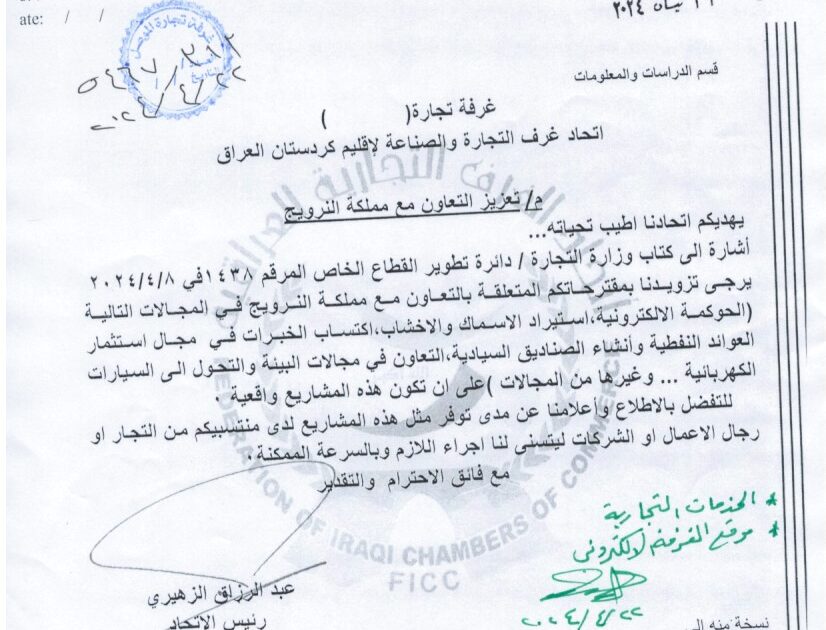 ate: / /
نيسان ٢٠٢٤
غرفة تجارة الموصل
التاريخ
٢٠٢٤/٤/٢٢
قسم الدراسات والمعلومات
غرفة تجارة( )
اتحاد غرف التجارة والصناعة لإقليم كردستان العراق
م/ تعزيز التعاون مع مملكة النرويج
يهديكم اتحادنا اطيب تحياته...
أشارة الى كتاب وزارة التجارة / دائرة تطوير القطاع الخاص المرقم ١٤٣٨ في ٢٠٢٤/٤/٨
يرجى تزويدنا بمقترحاتكم المتعلقة بالتعاون مع مملكة النرويج في المجالات التالية
(الحوكمة الالكترونية،استيراد الاسماك والاخشاب،اكتساب الخبرات في مجال استثمار
العوائد النفطية وأنشاء الصناديق السيادية،التعاون في مجالات البيئة والتحول الى السيارات
الكهربائية ... وغيرها من المجالات )على ان تكون هذه المشاريع واقعية .
للتفضل بالاطلاع وإعلامنا عن مدى توفر مثل هذه المشاريع لدى منتسبيكم من التجار او
رجال الاعمال او الشركات ليتسنى لنا اجراء اللازم وبالسرعة الممكنة.
مع فائق الاحترام والتقدير
* الخدمات التجارية
* موقع الغرفة الالكتروني
٢٠٢٤/٤/٢٢
عبد الرزاق الزهيري
رئيس الاتحاد
نسخة منه الى
اتحاد الغرف التجارية العراقية
FEDERATION OF IRAQI CHAMBERS OF COMMERCE
FICC